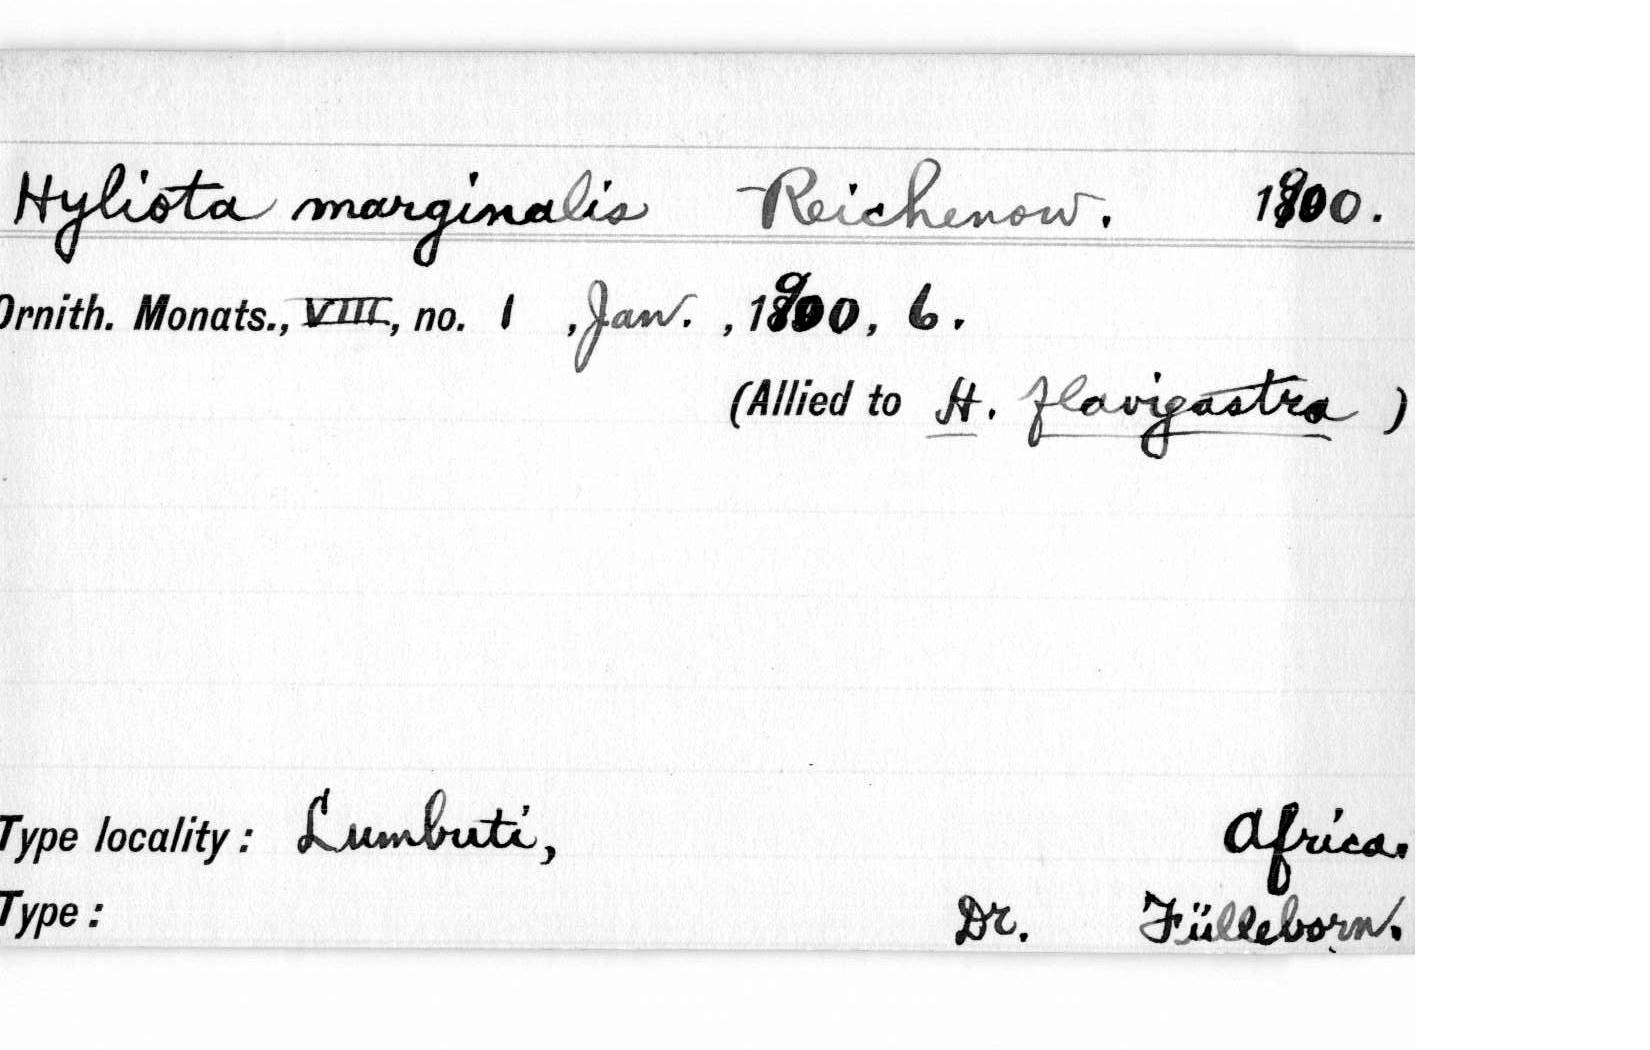 Hyliota marginalis Reichenow. 1900.
Ornith. Monats., VIII, no. 1 , Jan. , 1900, 6.
(Allied to H. flavigastra )
Type locality : Lumbuti, Africa.
Type : Dr. Fülleborn.